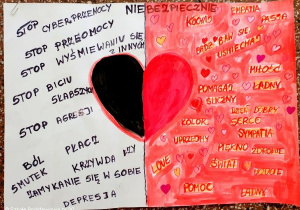 NIEBEZPIECZNIE
STOP CYBERPRZEMOCY
STOP PRZEMOCY
STOP WYŚMIEWANIU SIĘ
Z INNYCH
STOP BICIU
SŁABSZYCH
STOP AGRESJI
BÓL PŁACZ
SMUTEK KRZYWDA
ZAMYKANIE SIĘ W SOBIE
DEPRESJA
EMPATIA
KOCHAM PASJA
BĄDŹ BAW SIĘ
UŚMIECHAJ
MIŁOŚĆ
POMAGAJ ŁADNY
ŚLICZNY
DZIEŃ DOBRY
KOLOR SERCE
UPRZEJMY SYMPATIA
PIĘKNO
LOVE ŚWIAT
POMOC ŁATWY